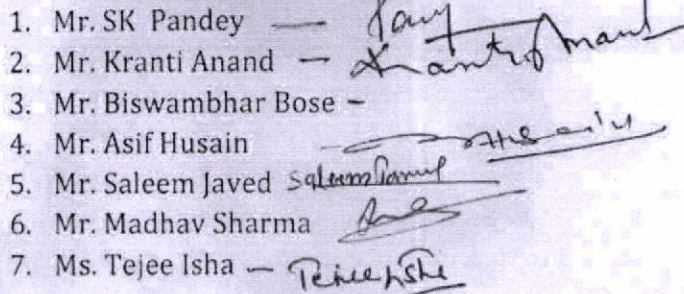 1. Mr. SK Pandey —
2. Mr. Kranti Anand — Kranti Anand
3. Mr. Biswambhar Bose –
4. Mr. Asif Husain Husain
5. Mr. Saleem Javed Saleem Javed
6. Mr. Madhav Sharma
7. Ms. Tejee Isha — Tejee Isha